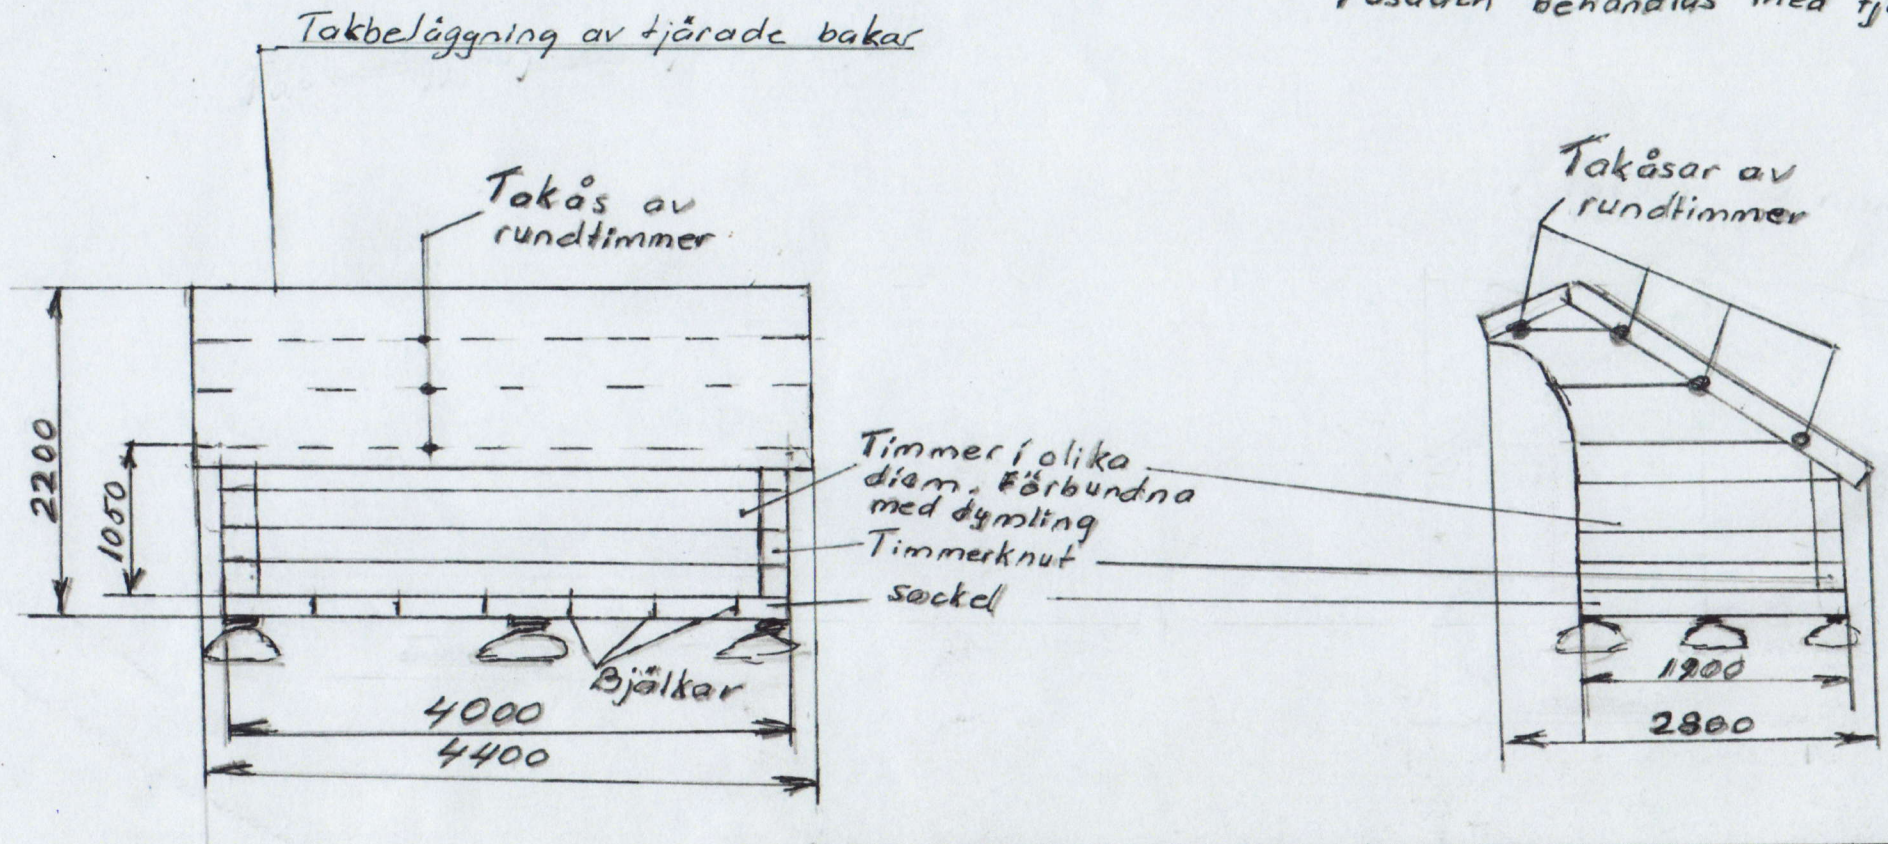 Takbeläggning av tjärade bakar
behandlas med
Takås av
rundtimmer
Takåsar av
rundtimmer
2200
1050
Timmer i olika
diam. Förbundna
med dymling
Timmerknut
sockel
Bjälkar
4000
4400
1900
2800